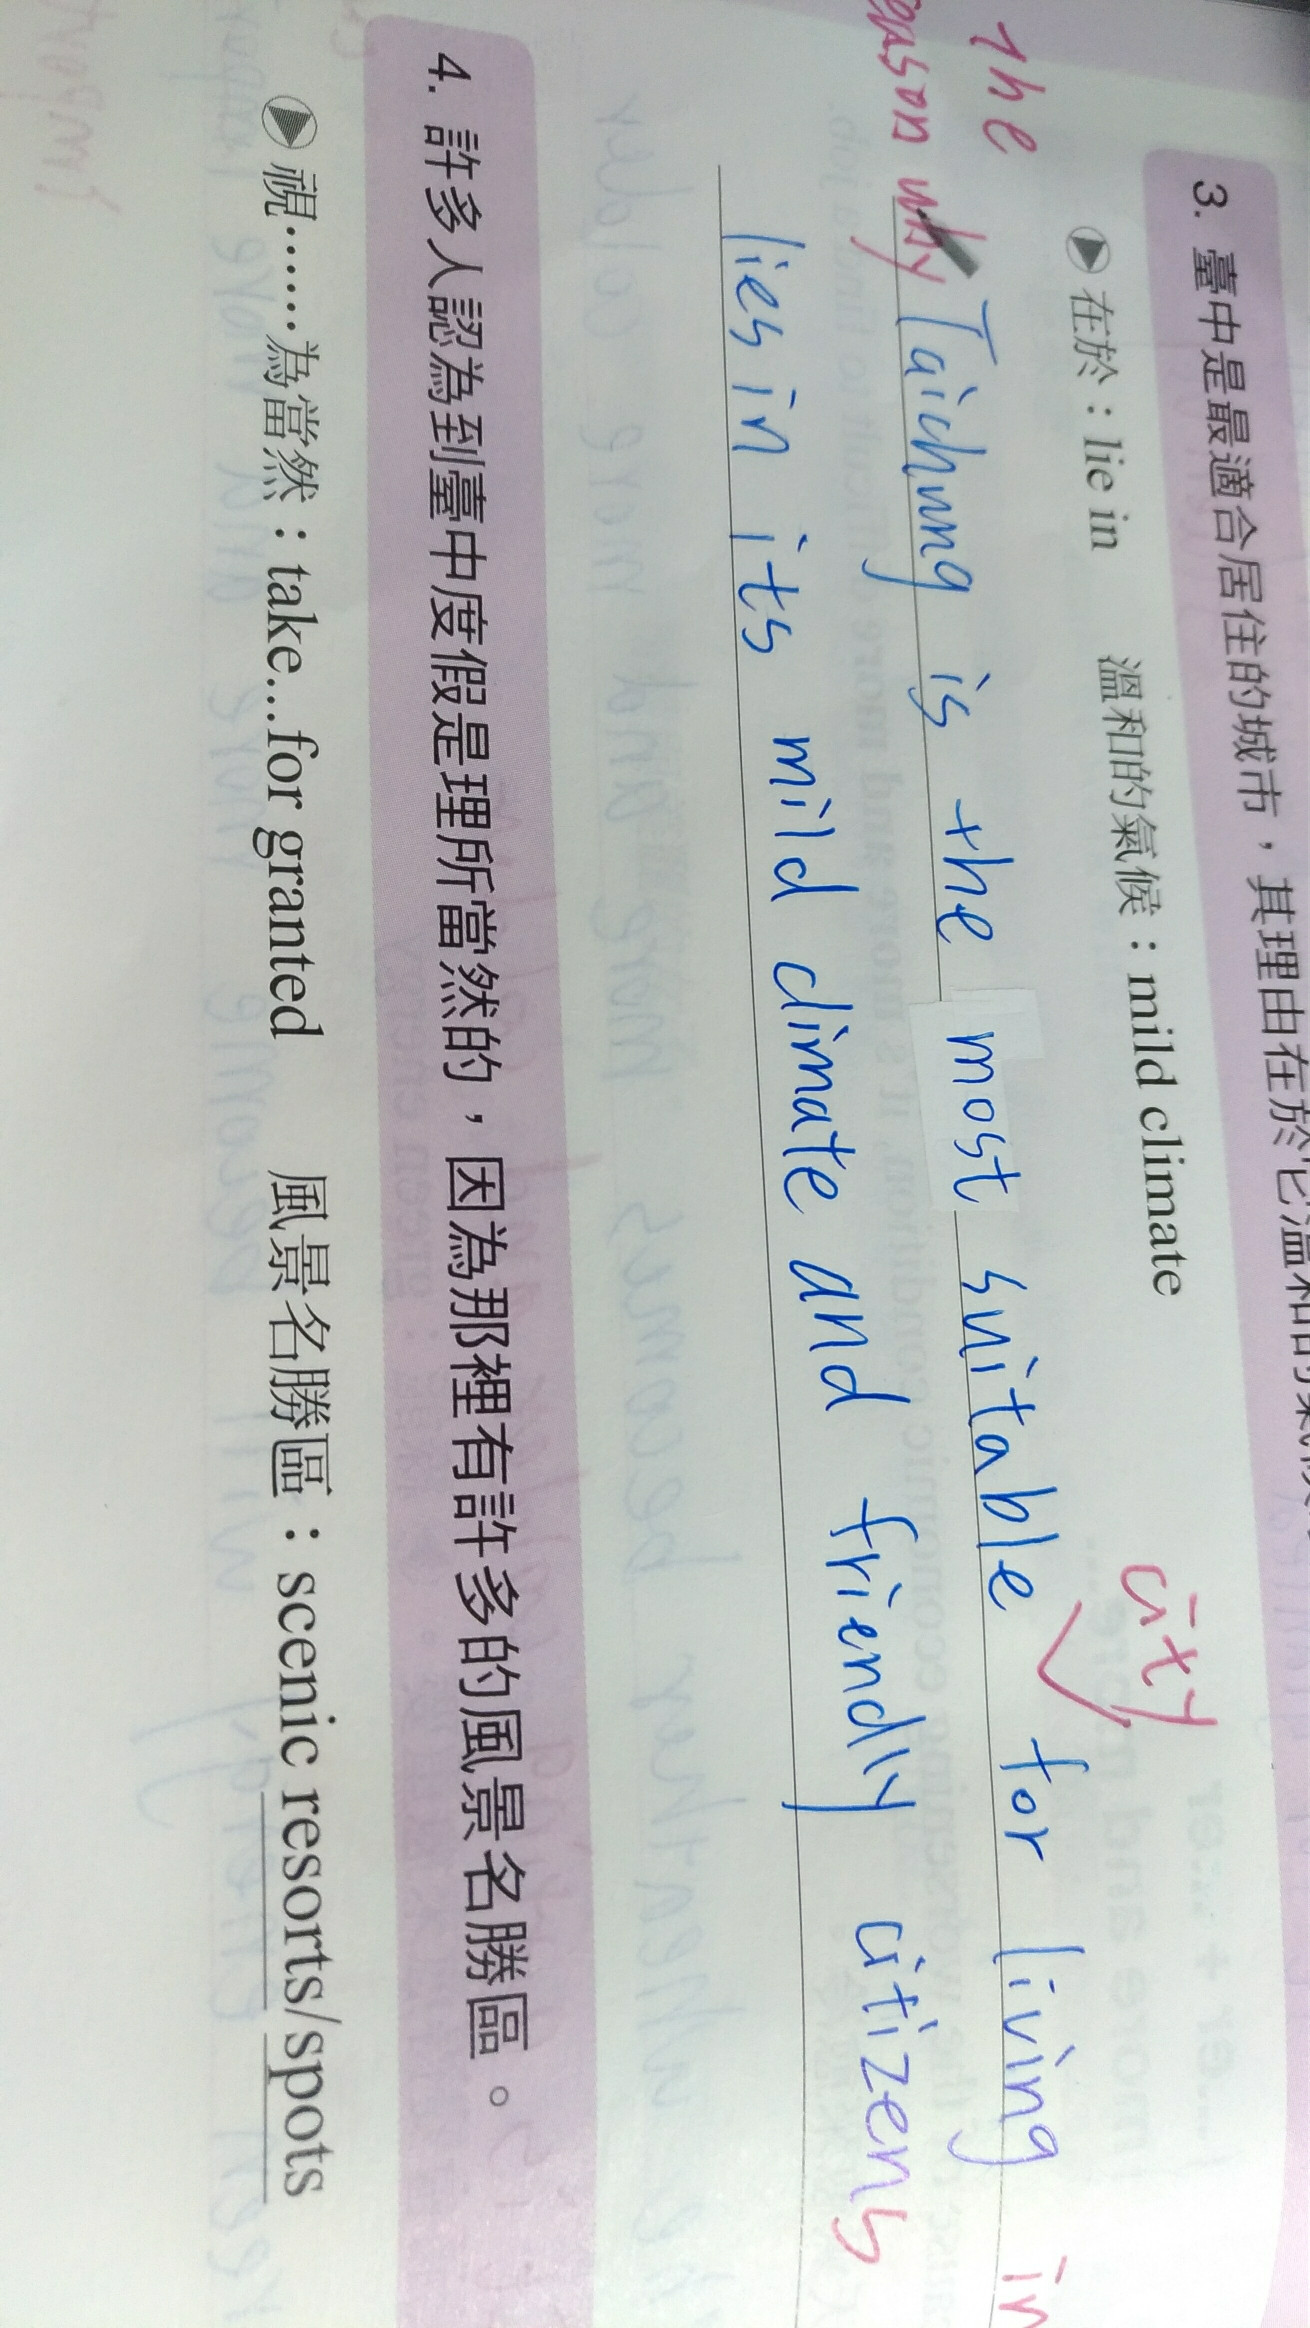 3. 臺中是最適合居住的城市，其理由在於它溫和的氣候
在於：lie in 溫和的氣候：mild climate
city
The
reason why Taichung is the most suitable for living in
lies in its mild climate and friendly citizens
4. 許多人認為到臺中度假是理所當然的，因為那裡有許多的風景名勝區。
視……為當然：take...for granted 風景名勝區：scenic resorts/spots